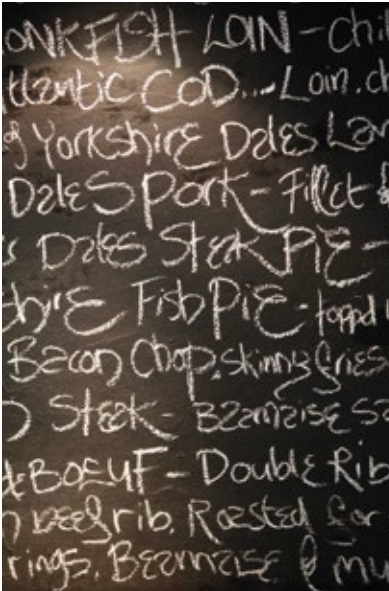 ONKFISH LOIN - chi
tlantic COD... Loin. c
g Yorkshire Dales La
Dales Pork - Fillet &
s Dales Steak PIE -
hire Fish PiE - topped
Bacon Chop, skinny fries
Steak - Bearnaise Sa
BOEUF - Double Rib
beef rib. Roasted for
rings. Bearnaise & mu